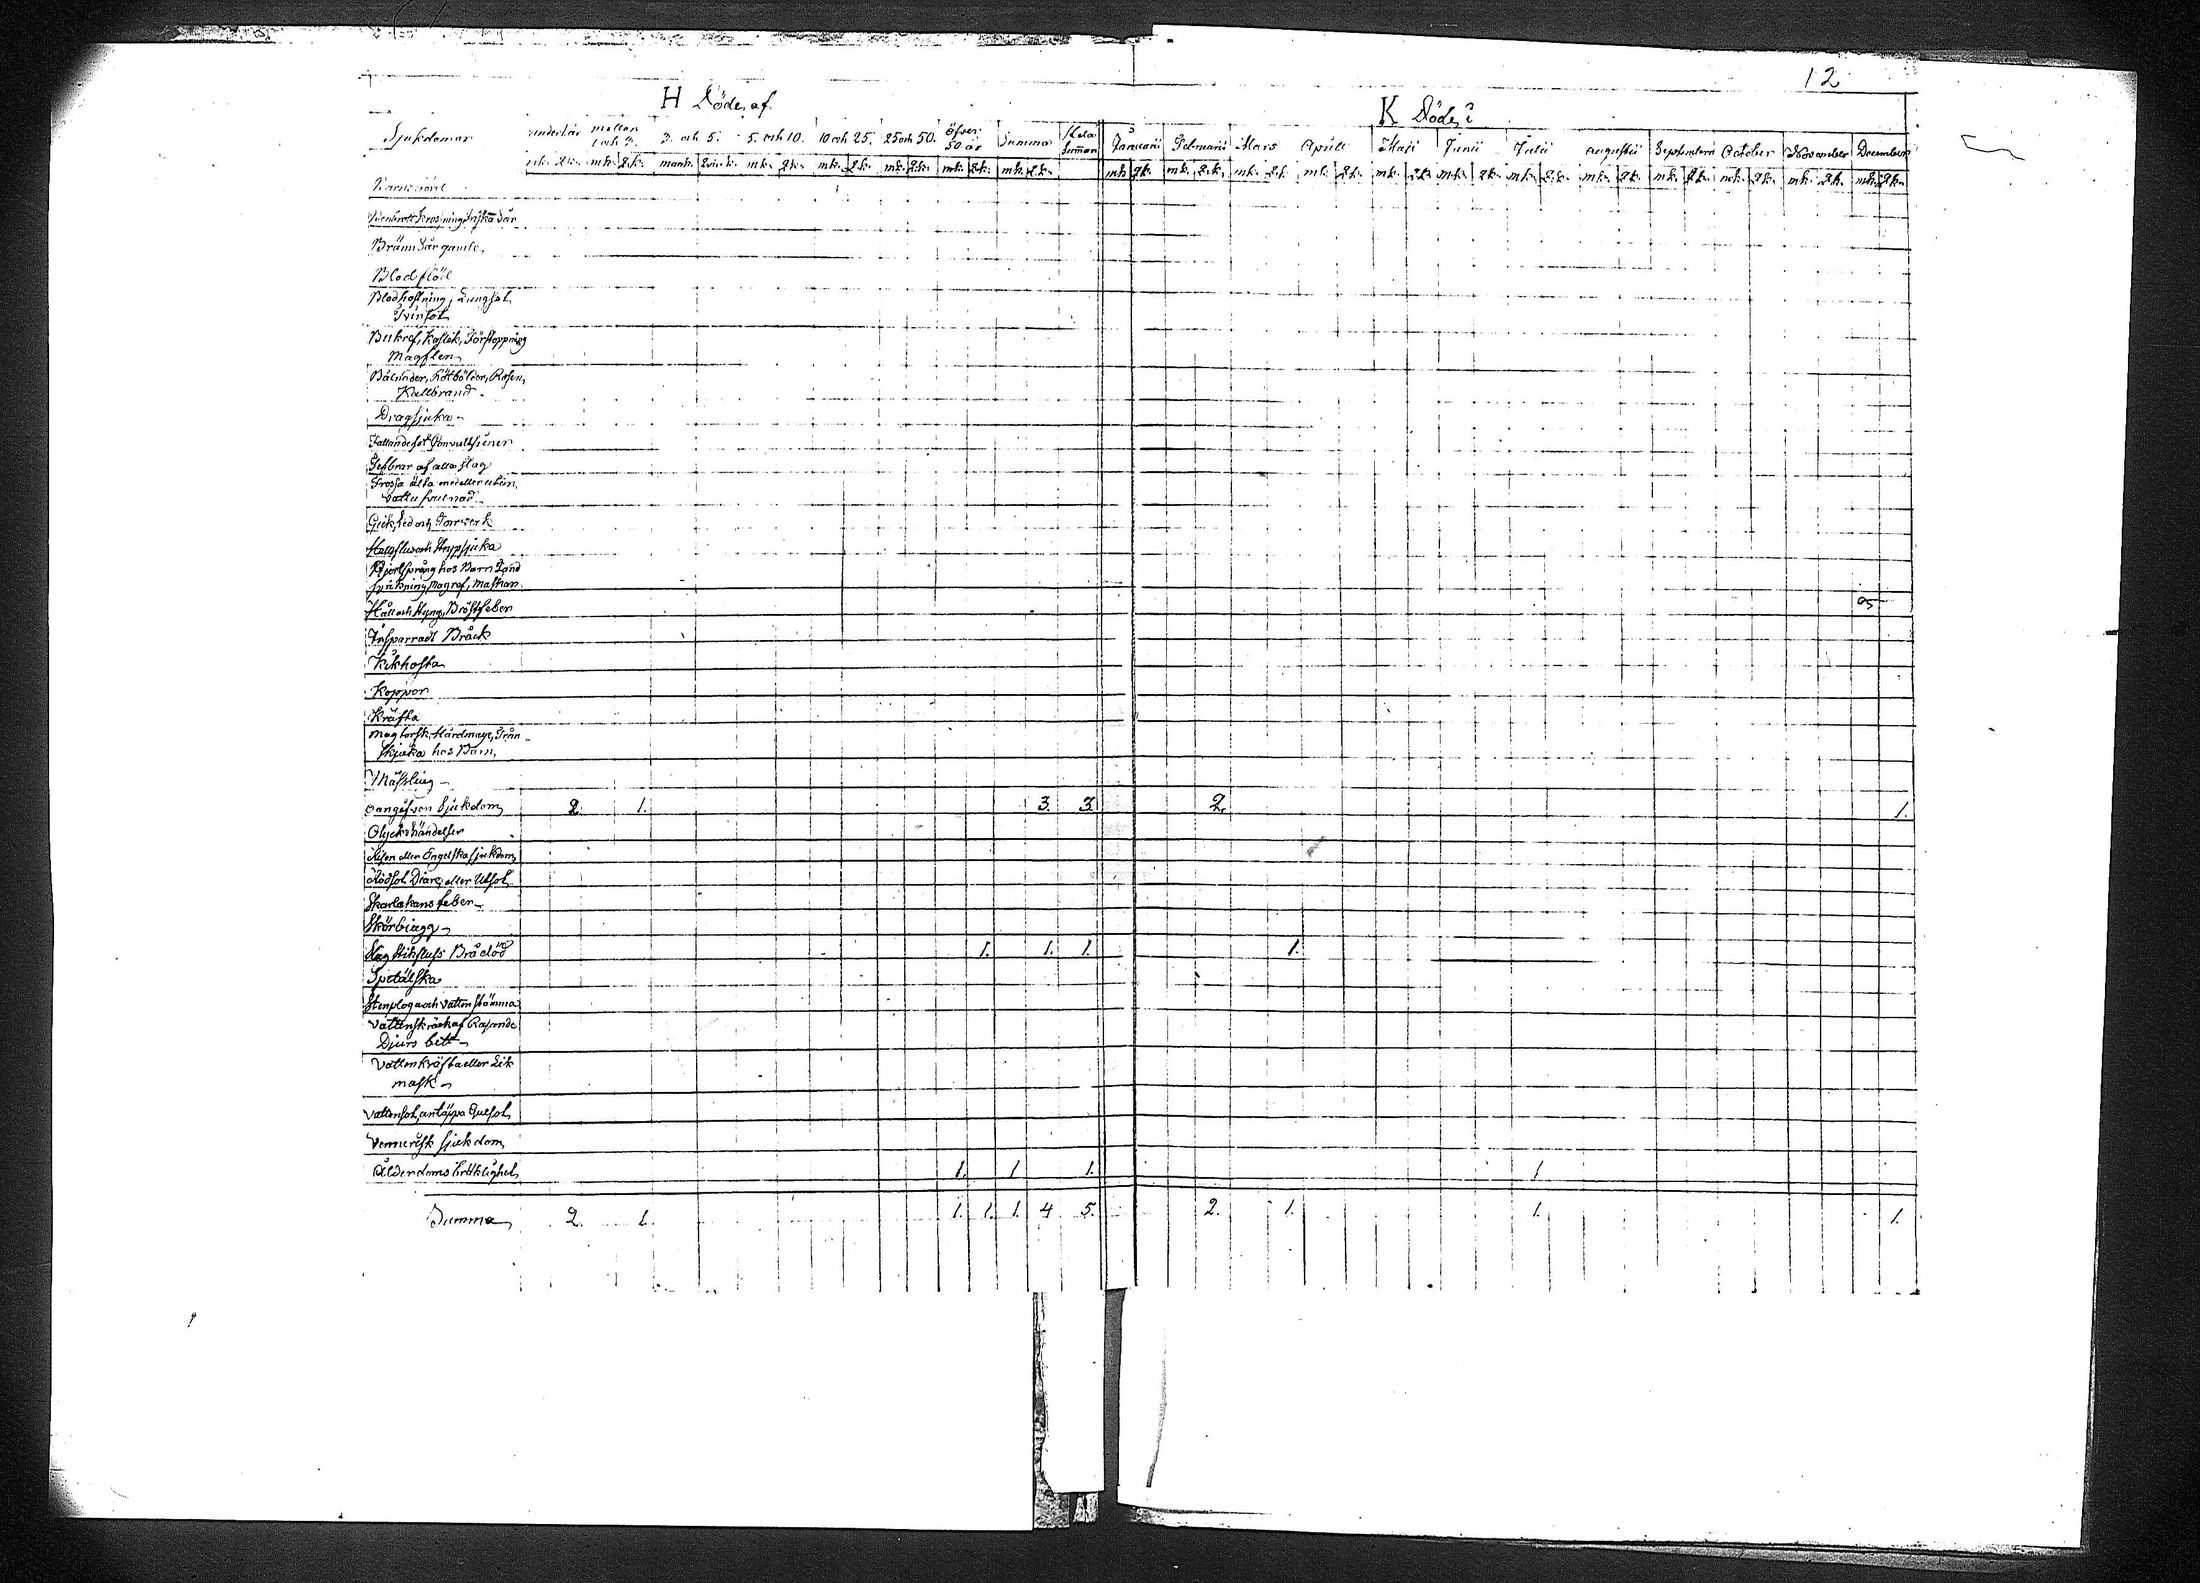 12
H Döde af
K Döde i
Sjukdomar under 1 år mellan 1 och 3. 3. och 5. 5. och 10. 10 och 25. 25 och 50. öfver 50 år Summa Hela Summan Januarii Februarii Mars Aprill Maji Junii Julii Augustii September October November December
mk. qk. mk. qk. mank. qvink. mk. qk. mk. qk. mk. qk. mk. qk. mk. qk. mk. qk. mk. qk. mk. qk. mk. qk. mk. qk. mk. qk. mk. qk. mk. qk. mk. qk. mk. qk. mk. qk. mk. qk.
Barnsbörd
Brännsår gamle
Blodflöd
Blodhostning, Lungsot
Tvinsot
Bukref, Kolik, Förstoppning
Magplen
Bölnader, Rötbölder, Rosen,
Kallbrand
Dragsjuka
Fallandesot Convultsiener
Febrar af alla slag
Frossa älta med eller utan
vattufvulnad
Gikt, Led och Torrverk
Halsfluss och Strypsjuka
Hjertsprång hos Barn Tand
sprickning, Magref, Maskar
Håll och Styng, Bröstfeber
Insparradt Bråck
Kikhosta
Koppor
Kräfta
Magtorsk, Hårdmage, Trån
sjuka hos Barn
Mässling
oangifven Sjukdom 2. 1. 3. 3. 2. 1.
Olyckshändelser
Risen eller Engelska sjukdom
Rödsot Diare, eller Utsot
Skarlakansfeber
Skörbjugg
Slag Stikfluss Brådöd 1. 1. 1. 1.
Spetälska
Stenplåga och vattenstämma
Vattenskräck af Rasande
Djurs bett
Vattenkräfta eller Lik
mask
Vattensot, antäppa Gulsot
Vennerisk sjukdom
Ålderdoms bräklighet 1. 1 1. 1
Summa 2. 1. 1. 1. 1. 4 5. 2. 1. 1. 1.